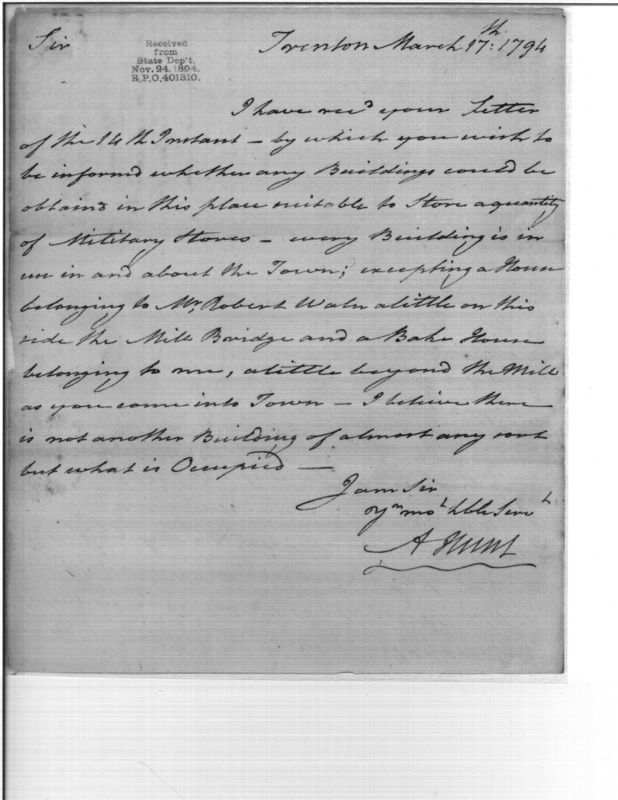 Sir
Received
from
State Dep't.
Nov. 24. 1894.
R.P.O. 401310.
Trenton March 17th: 1794
I have recd your Letter
of the 14th Instant – by which you wish to
be informed whether any Buildings could be
obtaind in this place suitable to Store a quantity
of Military Stores – every Building is in
use in and about the Town; excepting a House
belonging to Mr. Robert Waln a little on this
side the Mill Bridge and a Bake House
belonging to me, a little beyond the Mill
as you come into Town – I believe there
is not another Building of almost any sort
but what is Occupied –
I am Sir
Yr mot Hble Servt
A Hunt